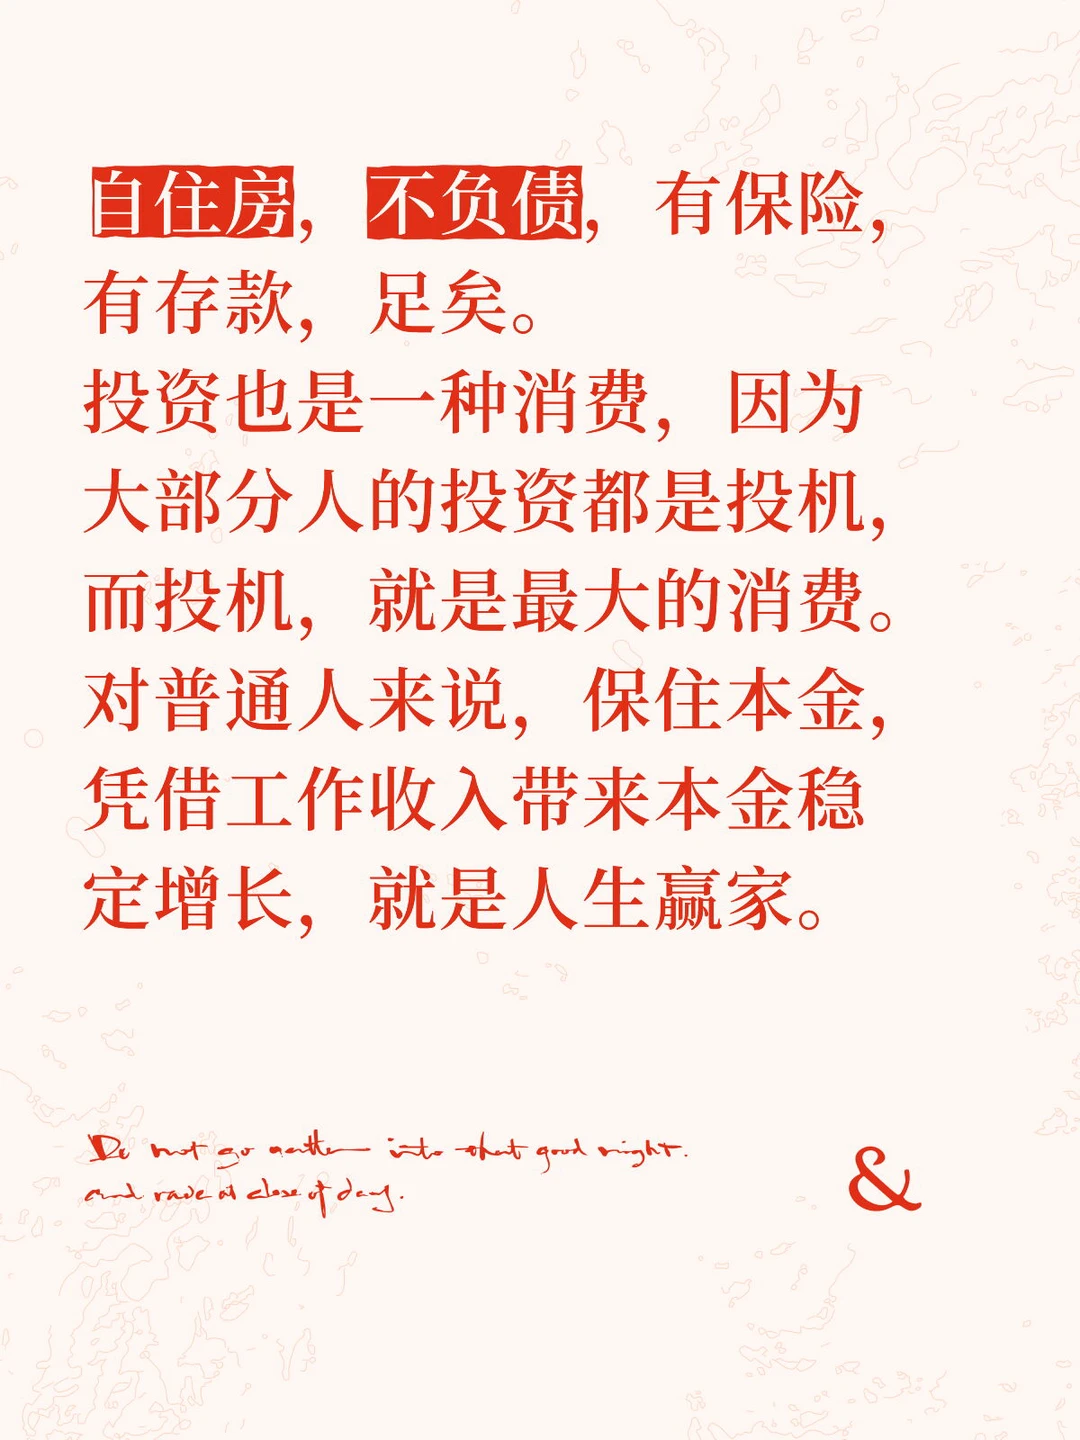 自住房，不负债，有保险，
有存款，足矣。
投资也是一种消费，因为
大部分人的投资都是投机，
而投机，就是最大的消费。
对普通人来说，保住本金，
凭借工作收入带来本金稳
定增长，就是人生赢家。
Do not go gentle into that good night.
and rave at close of day.
&